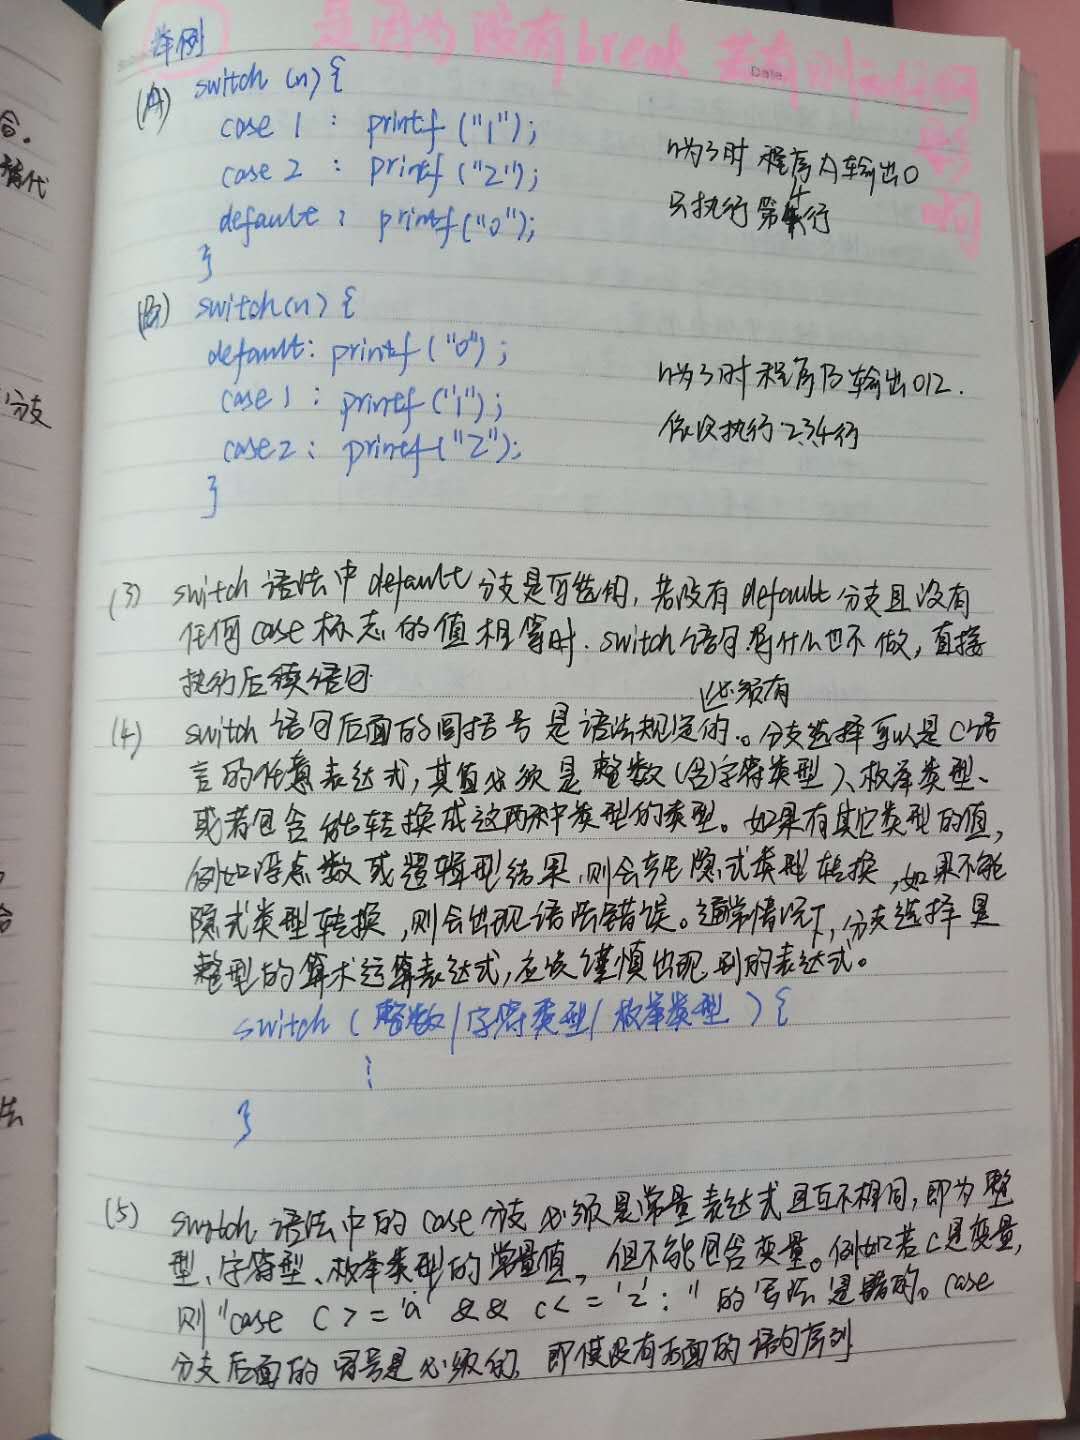 举例
是因为没有break 若有则
Date.
(A) switch (n) {
case 1 : printf ("1");
case 2 : printf ("2");
default : printf ("0");
}
n为3时 程序A输出0
只执行第4行
(B) switch(n) {
default: printf ("0");
case 1 : printf ("1");
case 2 : printf ("2");
}
n为3时 程序B输出012.
依次执行 2.3.4行
(3) switch 语法中 default 分支是可选的, 若没有 default 分支且没有
任何 case 标志的值相等时. switch语句将什么也不做, 直接
执行后续语句
必须有
(4) switch 语句后面的圆括号是语法规定的。分支选择可以是C语
言的任意表达式, 其值必须是整数(含字符类型)、枚举类型、
或者包含能转换成这两种类型的类型。如果有其它类型的值,
例如浮点数或逻辑型结果, 则会产生隐式类型转换, 如果不能
隐式类型转换, 则会出现语法错误。通常情况下, 分支选择是
整型的算术运算表达式, 应该谨慎出现别的表达式。
switch ( 整数 / 字符类型 / 枚举类型 ) {
⋮
}
(5) switch 语法中的 case 分支必须是常量表达式且互不相同, 即为整
型、字符型、枚举类型的常量值, 但不能包含变量。例如若C是变量,
则 "case C >= 'a' && c <= 'z' : " 的写法是错的。case
分支后面的冒号是必须的, 即使没有后面的语句序列
合.
替代
分支
合
法